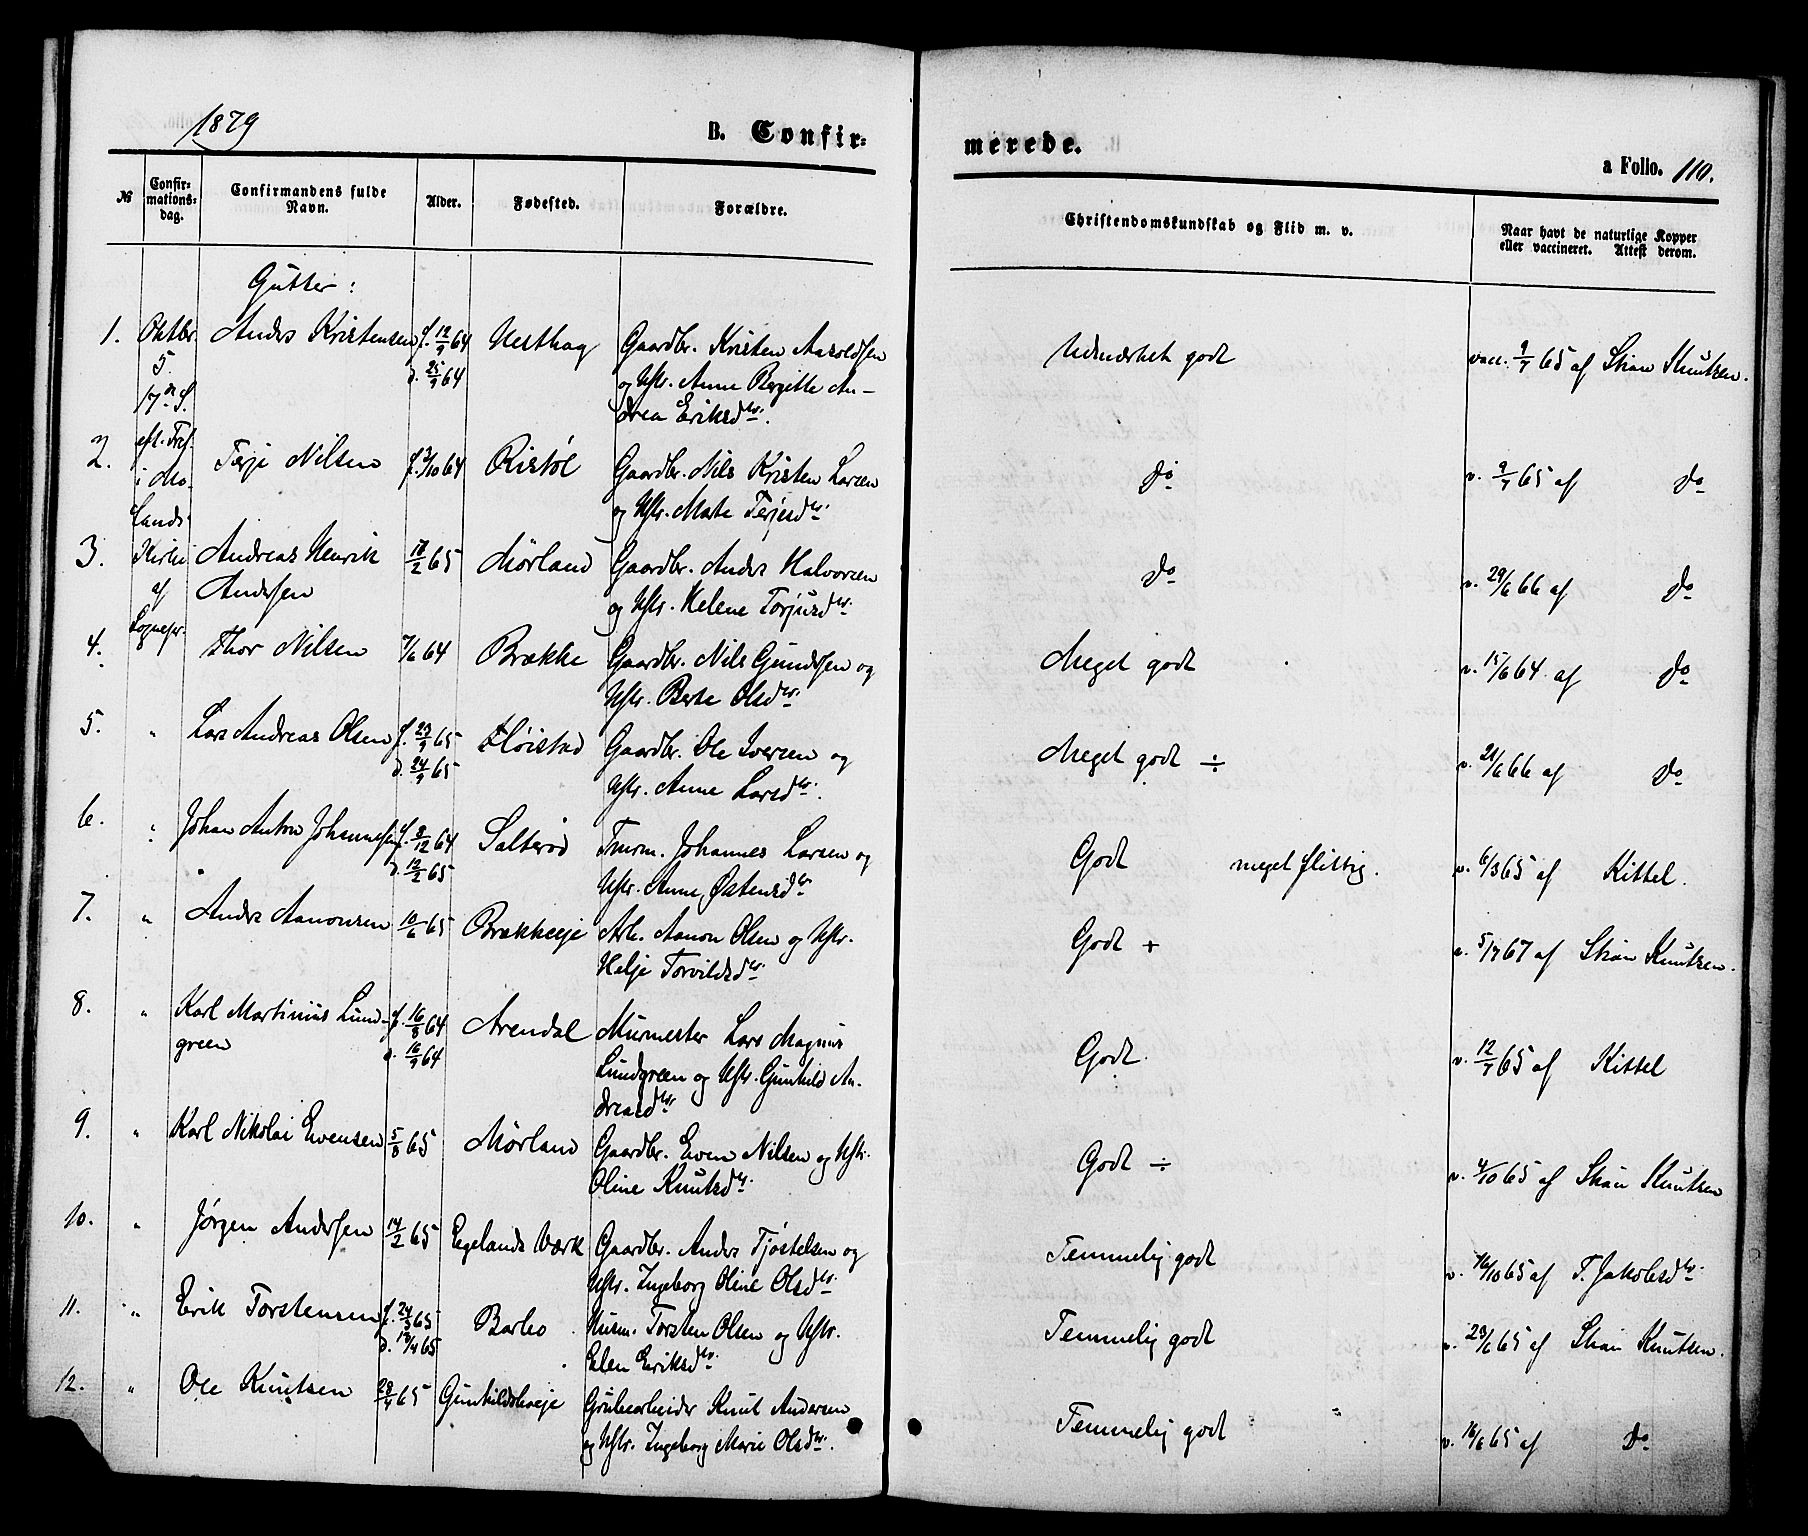 1879
B. Confirmerede.
a Folio. 110.
№ Confirmationsdag. Confirmandens fulde Navn. Alder. Fødested. Forældre. Christendomskundskab og Flid m. v. Naar havt de naturlige Kopper eller vaccineret. Attest derom.
Gutter:
1. Oktbr. Anders Kristensen f. 12/9 64 Vesthag Gaardbr. Kristen Aaroldsen Udmærket godt vacc. 9/7 65 af Skau Knutsen.
5. d. 25/9 64 og Hstr. Anne Bergitte An-
17de S. drea Eriksdtr.
eft. Tref.
2. i Mo- Terje Nilsen f. 3/10 64 Ristøl Gaardbr. Nils Kristen Larsen do v. 9/7 65 af do
lands og Hstr. Marte Terjesdtr.
3. Kirke Andreas Henrik 18/2 65 Mørland Gaardbr. Anders Halvorsen do v. 29/6 66 af do
af Andersen og Hstr. Helene Torjusdtr.
Sognepr.
4. Thor Nilsen 7/6 64 Brække Gaardbr. Nils Gundersen og Meget godt v. 15/6 64 af do
Hstr. Berte Olsdtr.
5. " Lars Andreas Olsen f. 23/9 65 Fløistad Gaardbr. Ole Iversen og Meget godt ÷ v. 21/6 66 af do
d. 24/9 65 Hstr. Anne Larsdtr.
6. " Johan Anton Johannesen f. 8/12 64 Salterød Tmrm. Johannes Larsen og Godt meget flittig. v. 6/3 65 af Kittel.
d. 12/2 65 Hstr. Anne Østensdtr.
7. " Anders Aanonsen 10/6 65 Brækkeeje Arb. Aanon Olsen og Hstr. Godt + v. 5/7 67 af Skau Knutsen.
Helje Torvildsdtr.
8. " Karl Martinius Lund- f. 16/8 64 Arendal Murmester Lars Magnus Godt. v. 12/7 65 af Kittel
green d. 16/9 64 Lundgreen og Hstr. Gunhild An-
dreasdtr.
9. " Karl Nikolai Evensen 5/8 65 Mørland Gaardbr. Even Nilsen og Hstr. Godt ÷ v. 4/10 65 af Skau Knutsen
Oline Knutsdtr.
10. " Jørgen Andersen 14/2 65 Egelands Værk Gaardbr. Anders Tjøstelsen og Temmelig godt v. 16/10 65 af T. Jakobsdtr
Hstr. Ingeborg Oline Olsdtr.
11. " Erik Torstensen f. 24/3 65 Barbo Husm. Torsten Olsen og Hstr. Temmelig godt v. 29/6 65 af Skau Knutsen.
d. 17/4 65 Elen Eriksdtr.
12. " Ole Knutsen 28/4 65 Gunhildsboeje Grubearbeider Knut Andersen Temmelig godt v. 16/6 65 af do
og Hstr. Ingeborg Marie Olsdtr.